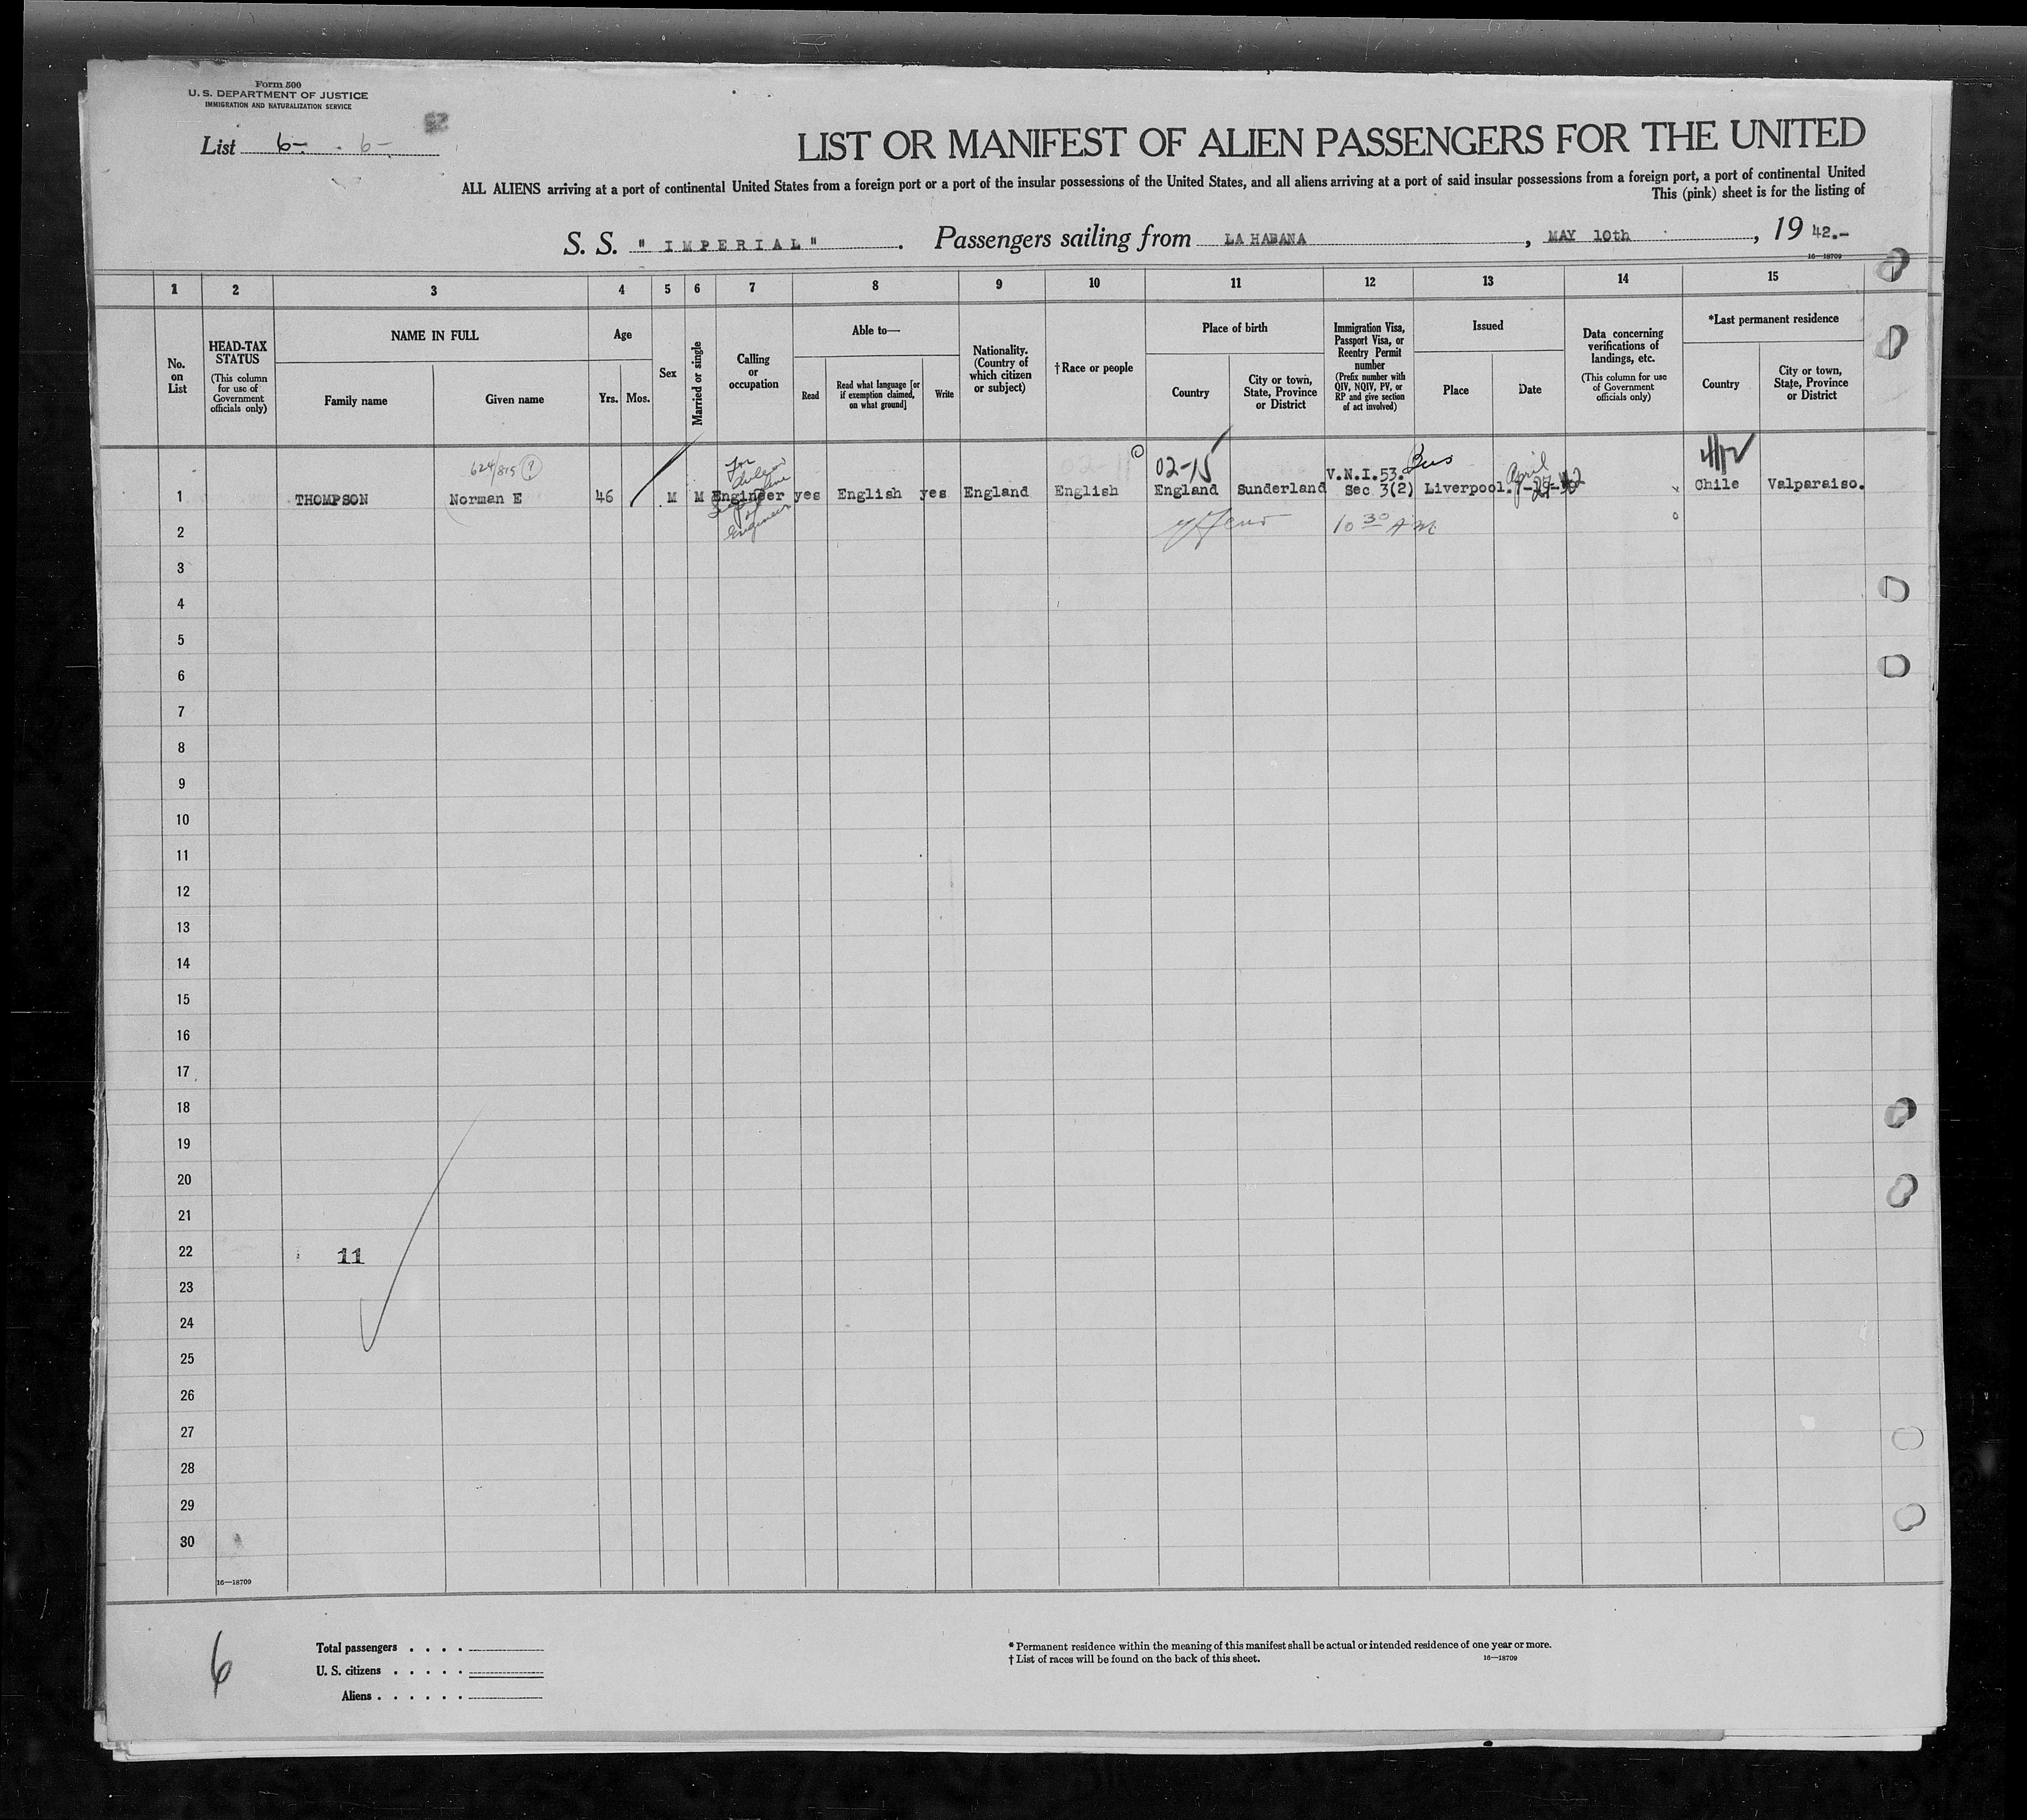 Form 500
U. S. DEPARTMENT OF JUSTICE
IMMIGRATION AND NATURALIZATION SERVICE
List 6- - 6-
LIST OR MANIFEST OF ALIEN PASSENGERS FOR THE UNITED
ALL ALIENS arriving at a port of continental United States from a foreign port or a port of the insular possessions of the United States, and all aliens arriving at a port of said insular possessions from a foreign port, a port of continental United
This (pink) sheet is for the listing of
S. S. " IMPERIAL " . Passengers sailing from LA HABANA , MAY 10th , 19 42.-
16—18709
1 2 3 4 5 6 7 8 9 10 11 12 13 14 15
No. on List
HEAD-TAX STATUS (This column for use of Government officials only)
NAME IN FULL
Family name
Given name
Age
Yrs. Mos.
Sex
Married or single
Calling or occupation
Able to—
Read
Read what language [or if exemption claimed, on what ground]
Write
Nationality. (Country of which citizen or subject)
† Race or people
Place of birth
Country
City or town, State, Province or District
Immigration Visa, Passport Visa, or Reentry Permit number (Prefix number with QIV, NQIV, PV, or RP and give section of act involved)
Issued
Place
Date
Data concerning verifications of landings, etc. (This column for use of Government officials only)
*Last permanent residence
Country
City or town, State, Province or District
624/815 (?)
02-15
V.N.I.53. Bus
April
1 THOMPSON Norman E 46 M M Engineer yes English yes England English England Sunderland Sec 3(2) Liverpool. Chile Valparaiso.
Engineer
10 30 AM
2
3
4
5
6
7
8
9
10
11
12
13
14
15
16
17
18
19
20
21
22 11
23
24
25
26
27
28
29
30
16—18709
6
Total passengers . . . .
U. S. citizens . . . . .
Aliens . . . . . .
* Permanent residence within the meaning of this manifest shall be actual or intended residence of one year or more.
† List of races will be found on the back of this sheet.
16—18709